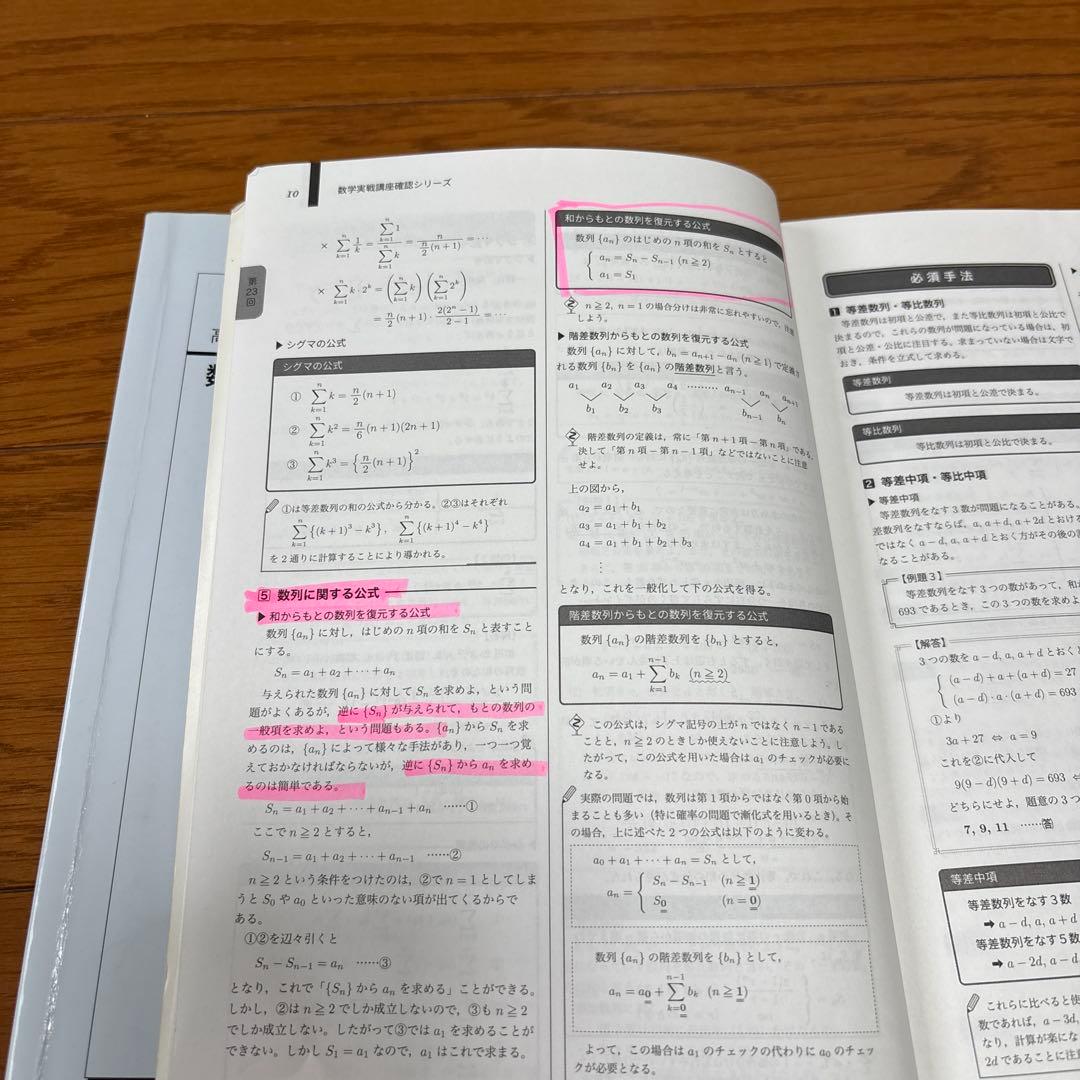 10
数学実戦講座確認シリーズ
第23回
× \sum_{k=1}^{n} \frac{1}{k} = \frac{\sum_{k=1}^{n} 1}{\sum_{k=1}^{n} k} = \frac{n}{\frac{n}{2}(n+1)} = …
× \sum_{k=1}^{n} k・2^k = (\sum_{k=1}^{n} k)(\sum_{k=1}^{n} 2^k)
= \frac{n}{2}(n+1)・\frac{2(2^n-1)}{2-1} = …
▶ シグマの公式
シグマの公式
① \sum_{k=1}^{n} k = \frac{n}{2}(n+1)
② \sum_{k=1}^{n} k^2 = \frac{n}{6}(n+1)(2n+1)
③ \sum_{k=1}^{n} k^3 = {\frac{n}{2}(n+1)}^2
①は等差数列の和の公式から分かる。②③はそれぞれ
\sum_{k=1}^{n} {(k+1)^3-k^3}, \sum_{k=1}^{n} {(k+1)^4-k^4}
を2通りに計算することにより導かれる。
5 数列に関する公式
▶ 和からもとの数列を復元する公式
数列 {a_n} に対し,はじめの n 項の和を S_n と表すこと
にする。
S_n = a_1 + a_2 + ・・・ + a_n
与えられた数列 {a_n} に対して S_n を求めよ,という問
題がよくあるが,逆に {S_n} が与えられて,もとの数列の
一般項を求めよ,という問題もある。{a_n} から S_n を求
めるのは,{a_n} によって様々な手法があり,一つ一つ覚
えておかなければならないが,逆に {S_n} から a_n を求め
るのは簡単である。
S_n = a_1 + a_2 + ・・・ + a_{n-1} + a_n ……①
ここで n ≧ 2 とすると,
S_{n-1} = a_1 + a_2 + ・・・ + a_{n-1} ……②
n ≧ 2 という条件をつけたのは,②で n = 1 としてしま
うと S_0 や a_0 といった意味のない項が出てくるからで
ある。
①②を辺々引くと
S_n - S_{n-1} = a_n ……③
となり,これで「{S_n} から a_n を求める」ことができる。
しかし,②は n ≧ 2 でしか成立しないので,③も n ≧ 2
でしか成立しない。したがって③では a_1 を求めることが
できない。しかし S_1 = a_1 なので,a_1 はこれで求まる。
和からもとの数列を復元する公式
数列 {a_n} のはじめの n 項の和を S_n とすると
a_n = S_n - S_{n-1} (n ≧ 2)
a_1 = S_1
n ≧ 2, n = 1 の場合分けは非常に忘れやすいので,注意
しよう。
▶ 階差数列からもとの数列を復元する公式
数列 {a_n} に対して,b_n = a_{n+1} - a_n (n ≧ 1) で定義さ
れる数列 {b_n} を {a_n} の階差数列と言う。
a_1 a_2 a_3 a_4 ……… a_{n-1} a_n a_{n+1}
b_1 b_2 b_3 b_{n-1} b_n
階差数列の定義は,常に「第 n+1 項-第 n 項」である。
決して「第 n 項-第 n-1 項」などではないことに注意
せよ。
上の図から,
a_2 = a_1 + b_1
a_3 = a_1 + b_1 + b_2
a_4 = a_1 + b_1 + b_2 + b_3
⋮
となり,これを一般化して下の公式を得る。
階差数列からもとの数列を復元する公式
数列 {a_n} の階差数列を {b_n} とすると,
a_n = a_1 + \sum_{k=1}^{n-1} b_k (n ≧ 2)
この公式は,シグマ記号の上が n ではなく n-1 である
ことと,n ≧ 2 のときしか使えないことに注意しよう。し
たがって,この公式を用いた場合は a_1 のチェックが必要に
なる。
実際の問題では,数列は第1項からではなく第0項から始
まることも多い(特に確率の問題で漸化式を用いるとき)。そ
の場合,上に述べた2つの公式は以下のように変わる。
a_0 + a_1 + ・・・ + a_n = S_n として,
a_n = { S_n - S_{n-1} (n ≧ 1)
S_0 (n = 0)
数列 {a_n} の階差数列を {b_n} として,
a_n = a_0 + \sum_{k=0}^{n-1} b_k (n ≧ 1)
よって,この場合は a_1 のチェックの代わりに a_0 のチェッ
クが必要となる。
必須手法
1 等差数列・等比数列
等差数列は初項と公差で,また等比数列は初項と公比で
決まるので,これらの数列が問題になっている場合は,初
項と公差・公比に注目する。求まっていない場合は文字で
おき,条件を立式して求める。
等差数列
等差数列は初項と公差で決まる。
等比数列
等比数列は初項と公比で決まる。
2 等差中項・等比中項
▶ 等差中項
等差数列をなす3数が問題になることがある。
差数列をなすならば,a, a+d, a+2d とおけ
ではなく a-d, a, a+d とおく方がその後の
なることがある。
【例題3】
等差数列をなす3つの数があって,和が
693であるとき,この3つの数を求めよ
【解答】
3つの数を a-d, a, a+d とおくと
(a-d)+a+(a+d) = 27
(a-d)・a・(a+d) = 693
①より
3a+27 ⇔ a=9
これを②に代入して
9(9-d)(9+d) = 693 ⇔
どちらにせよ,題意の3つ
7, 9, 11 ……答
等差中項
等差数列をなす3数
➡ a-d, a, a+d
等差数列をなす5数
➡ a-2d, a-d
これらに比べると使
数であれば,a-3d,
なり,計算が楽にな
2d であることに注意